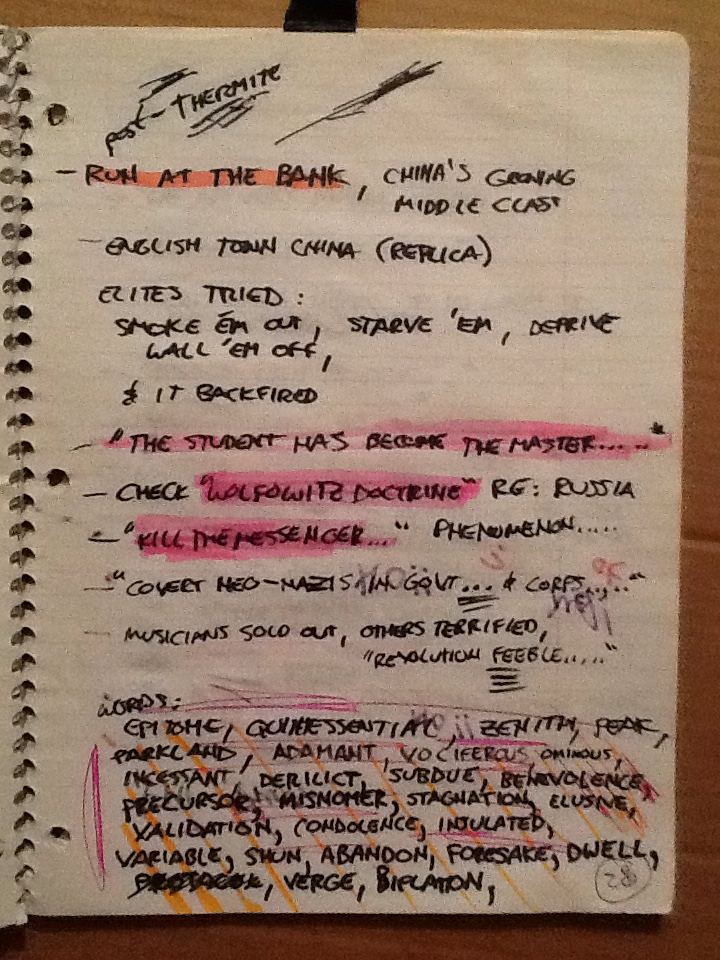 post-THERMITE
- RUN AT THE BANK, CHINA'S GROWING
MIDDLE CLASS
- ENGLISH TOWN CHINA (REPLICA)
ELITES TRIED:
SMOKE 'EM OUT, STARVE 'EM, DEPRIVE
WALL 'EM OFF,
& IT BACKFIRED
- "THE STUDENT HAS BECOME THE MASTER....."
- CHECK "WOLFOWITZ DOCTRINE" RE: RUSSIA
- "KILL THE MESSENGER..." PHENOMENON.....
- "COVERT NEO-NAZIS IN GOVT... & CORPS....."
- MUSICIANS SOLD OUT, OTHERS TERRIFIED,
"REVOLUTION FEEBLE....."
WORDS:
EPITOME, QUINESSENTIAL, ZENITH, PEAK,
PARKLAND, ADAMANT, VOCIFEROUS OMINOUS,
INCESSANT, DERILICT, SUBDUE, BENEVOLENCE,
PRECURSOR, MISNOMER, STAGNATION, ELUSIVE,
VALIDATION, CONDOLENCE, INSULATED,
VARIABLE, SHUN, ABANDON, FORESAKE, DWELL,
VERGE, BIFLATON,
28